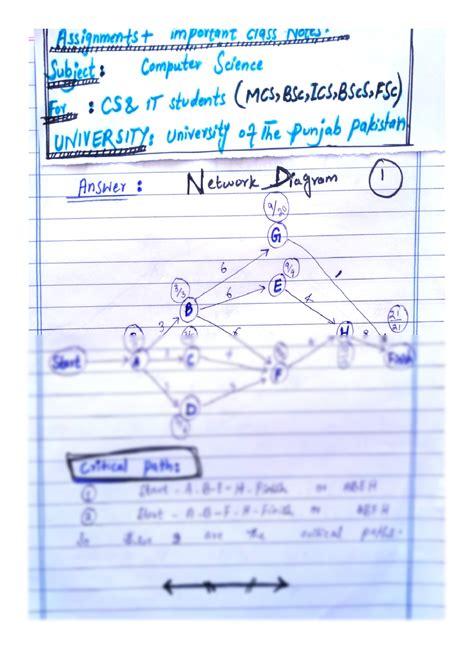 Assignments + important class Notes.
Subject: Computer Science
For: CS & IT students (MCS, BSc, ICS, BSCS, FSc)
UNIVERSITY: University of The Punjab Pakistan
Answer: Network Diagram 1
9/20
G
6
9/9
E
3/3
6
B
4
21/21
3
6
H
8
Start
A
C
4
F
Finish
D
Critical paths:
1 Start - A-B-E-H-Finish or ABEH
2 Start - A-B-F-H-Finish or ABFH
So these 2 are the critical paths.